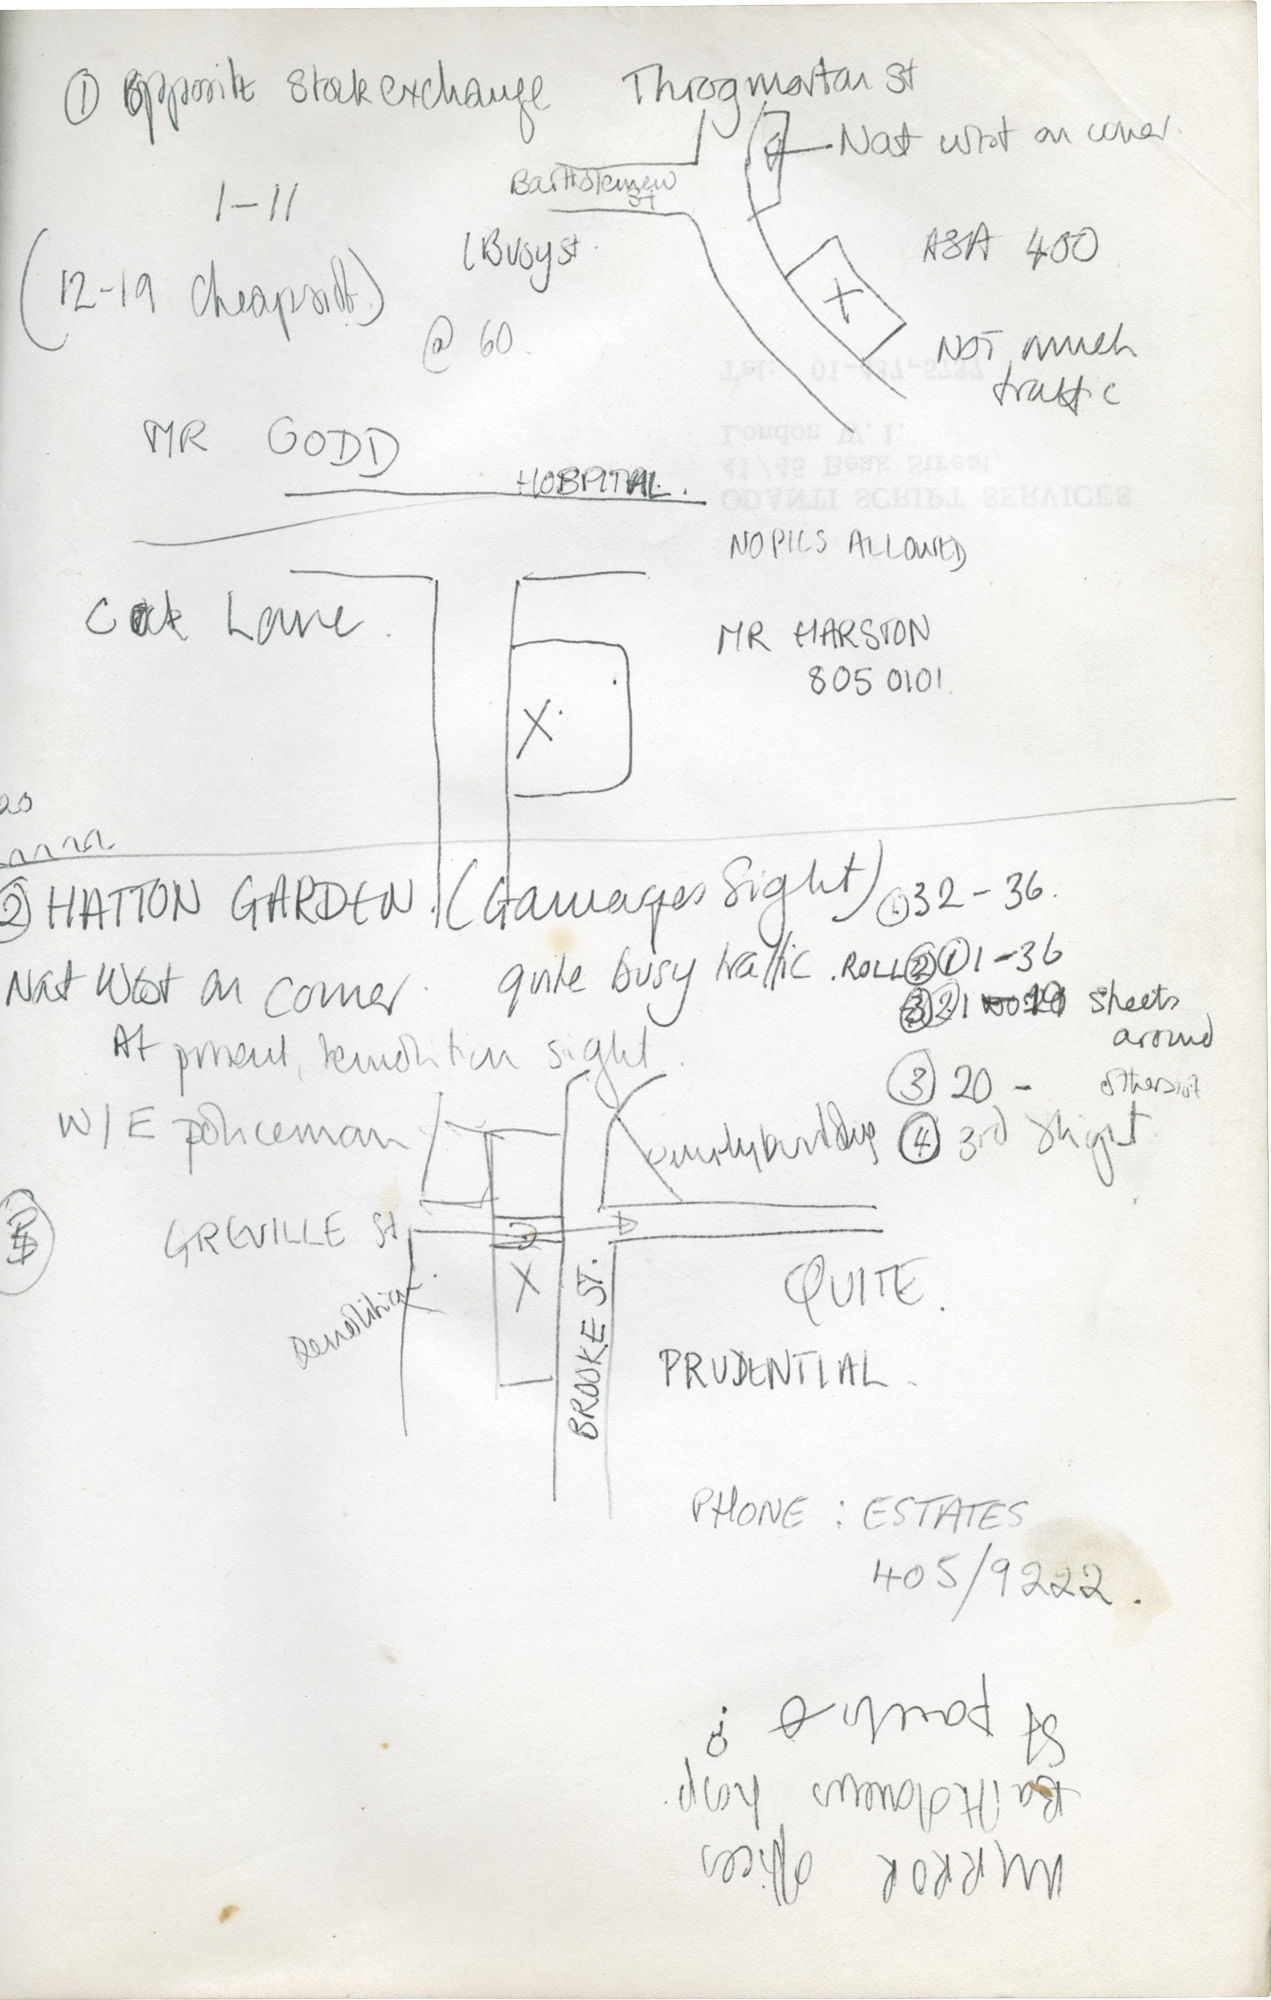 ① Opposite Stock exchange Throgmorton St
Nat West on corner.
Bartholomew
St
1-11
(Busy st.
ASA 400
(12-19 Cheapside)
@ 60.
NOT much
traffic
Tel: 01-437-5737
London W.1.
41/45 Beak Street,
ODANTI SCRIPT SERVICES
MR GODD
HOSPITAL.
NO PICS ALLOWED
Cock Lane.
MR HARSTON
805 0101.
X
X
② HATTON GARDEN. (Gamages Sight)
① 32-36.
Nat West on corner. quite busy traffic. ROLL ② ① 1-36
sheets
around
otherside
At present, demolition sight.
③ 20 -
W/E policeman
④ 3rd sight
GREVILLE St
Demolition.
X
BROOKE ST.
QUITE.
PRUDENTIAL.
PHONE: ESTATES
405/9222.
MIRROR offices
Bartholomews hosp.
St pauls